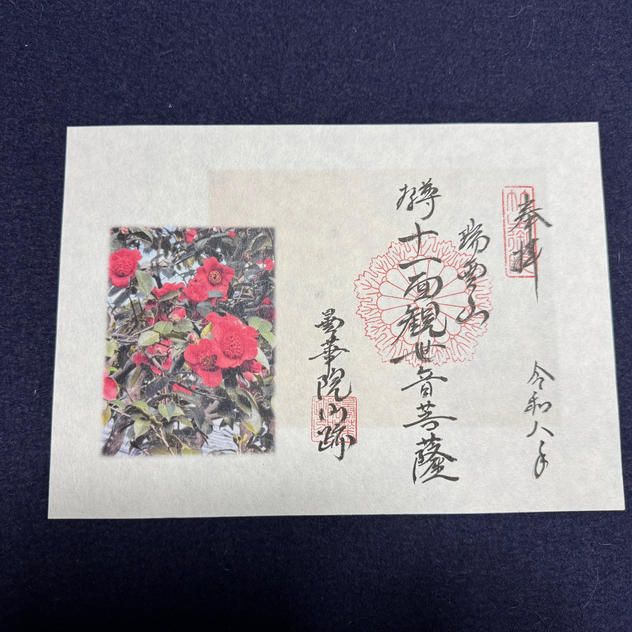 奉拝
令和八年
瑞雲山
十一面観世音菩薩
曇華院門跡